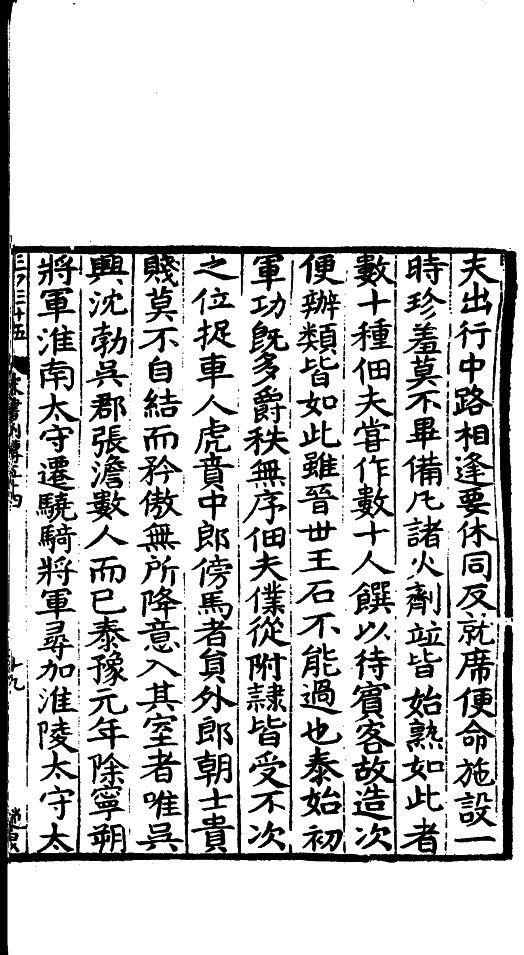 夫出行中路相逢要休同反就席便命施設一
時珍羞莫不畢備凡諸火劑竝皆始熟如此者
數十種佃夫甞作數十人饌以待賓客故造次
便辦類皆如此雖晉世王石不能過也泰始初
軍功旣多爵秩無序佃夫僕從附隷皆受不次
之位捉車人虎賁中郎傍馬者負外郎朝士貴
賤莫不自結而矜傲無所降意入其室者唯吳
興沈勃吳郡張澹數人而已泰豫元年除寧朔
將軍淮南太守遷驍騎將軍尋加淮陵太守太
宋書列傳五十四
十九